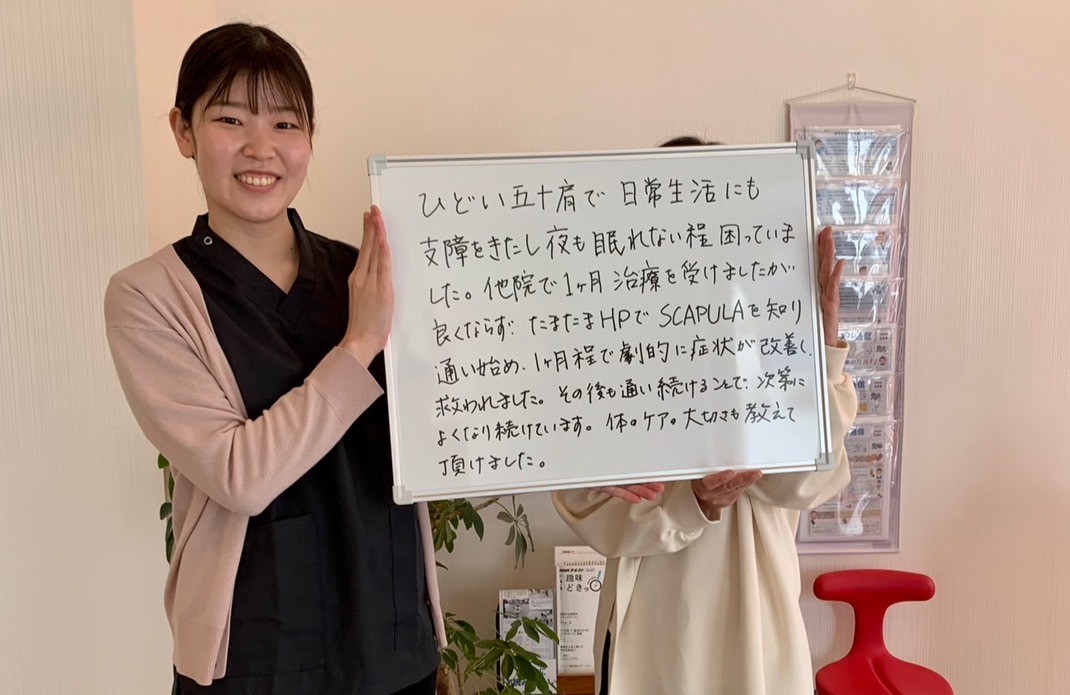 ひどい五十肩で日常生活にも
支障をきたし夜も眠れない程困っていま
した。他院で1ヶ月治療を受けましたが
良くならず、たまたまHPでSCAPULAを知り
通い始め、1ヶ月程で劇的に症状が改善し、
救われました。その後も通い続けることで、次第に
よくなり続けています。体のケアの大切さも教えて
頂けました。
趣味
どきっ